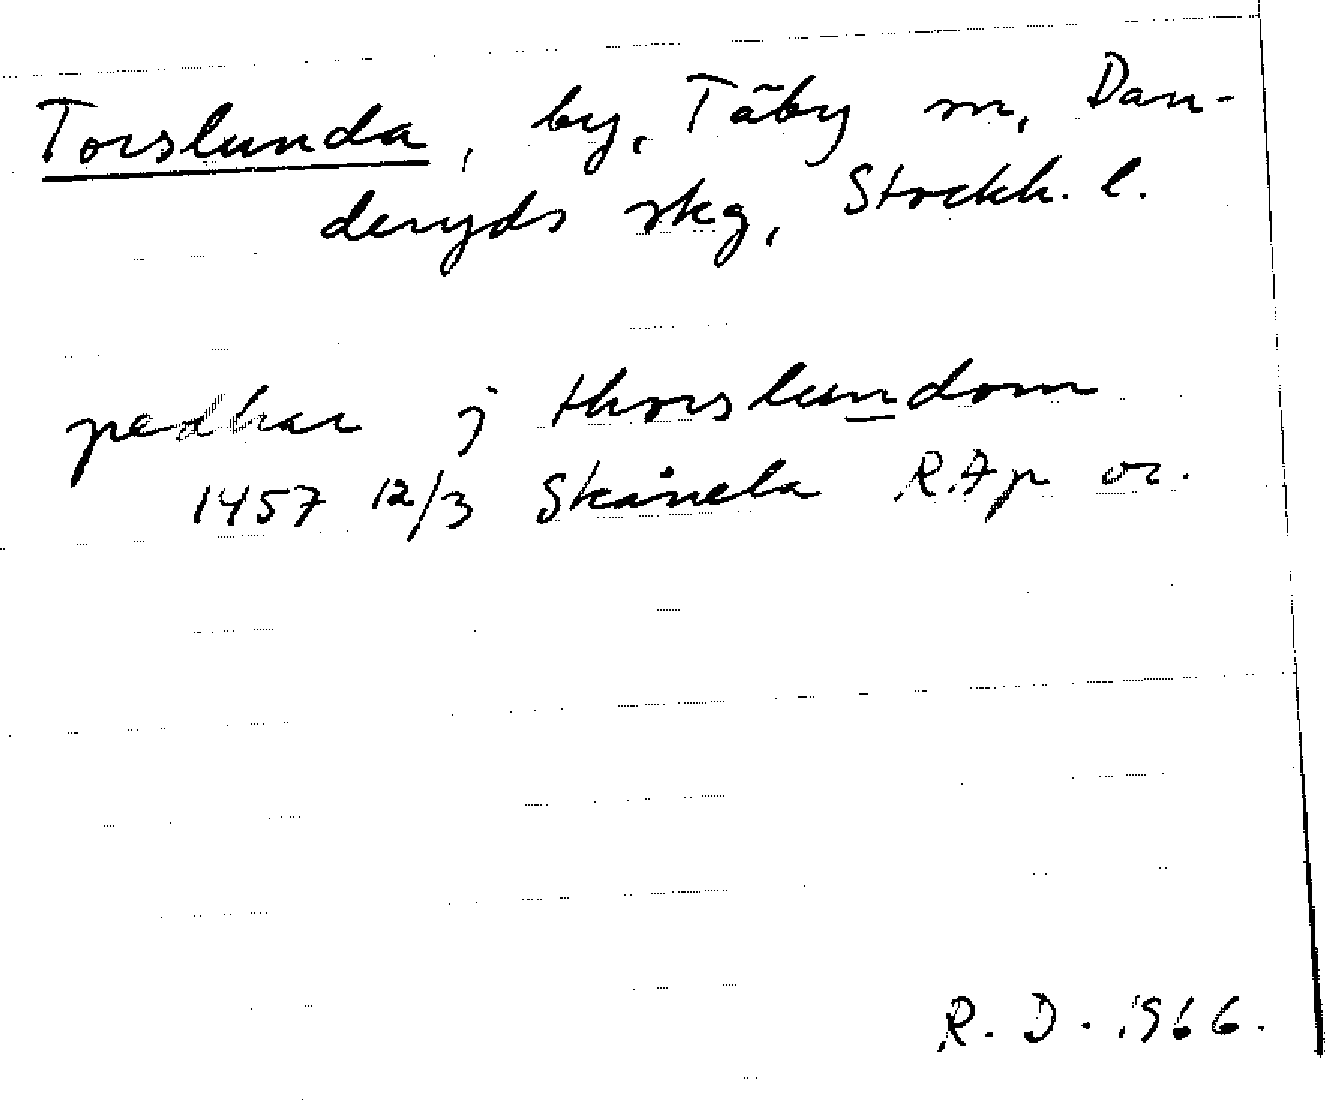 Torslunda, by, Täby sn, Dan-
deryds skg, Stockh. l.
pædhar j thorslundom
1457 12/3 Skånela RAp or.
R. D. 1966.